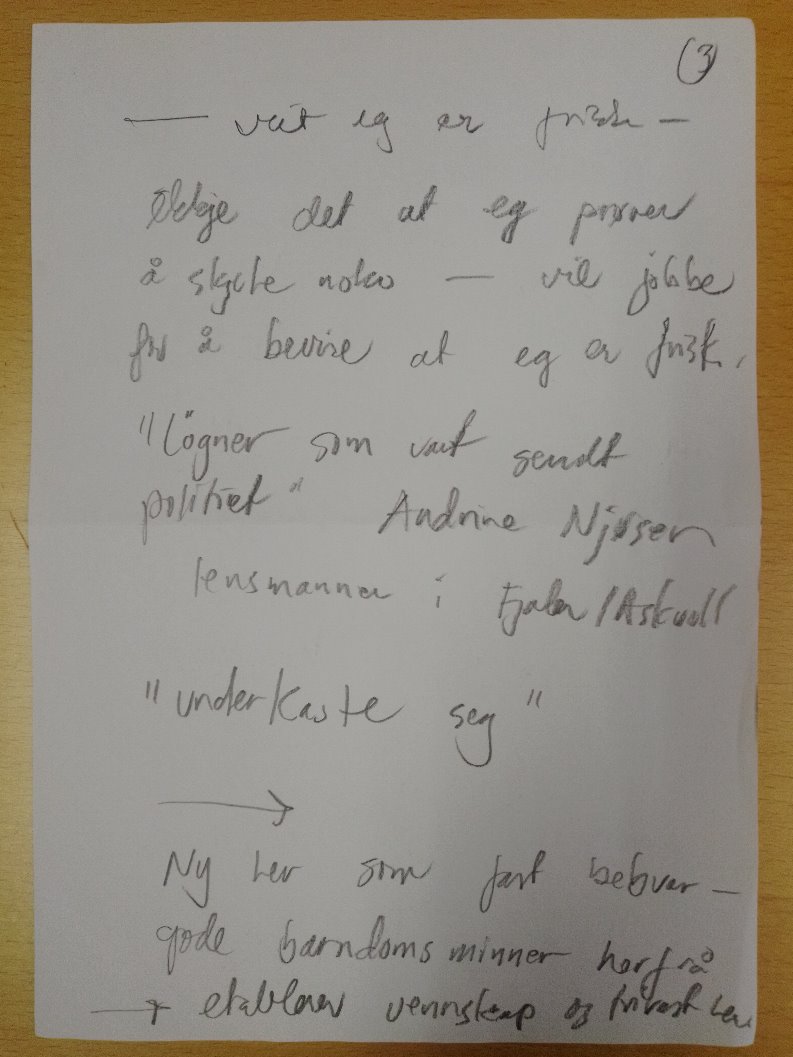 (3)
— veit eg er frisk —
Ikkje det at eg prøver
å skyte noko — vil jobbe
for å bevise at eg er frisk.
"Løgner som vart sendt
politiet" Andrine Njøsen
lensmannen i Fjaler/Askvoll
"underkaste seg"
→
Ny her som fast bebuar —
gode barndoms minner herfrå
→ etablerer vennskap og her